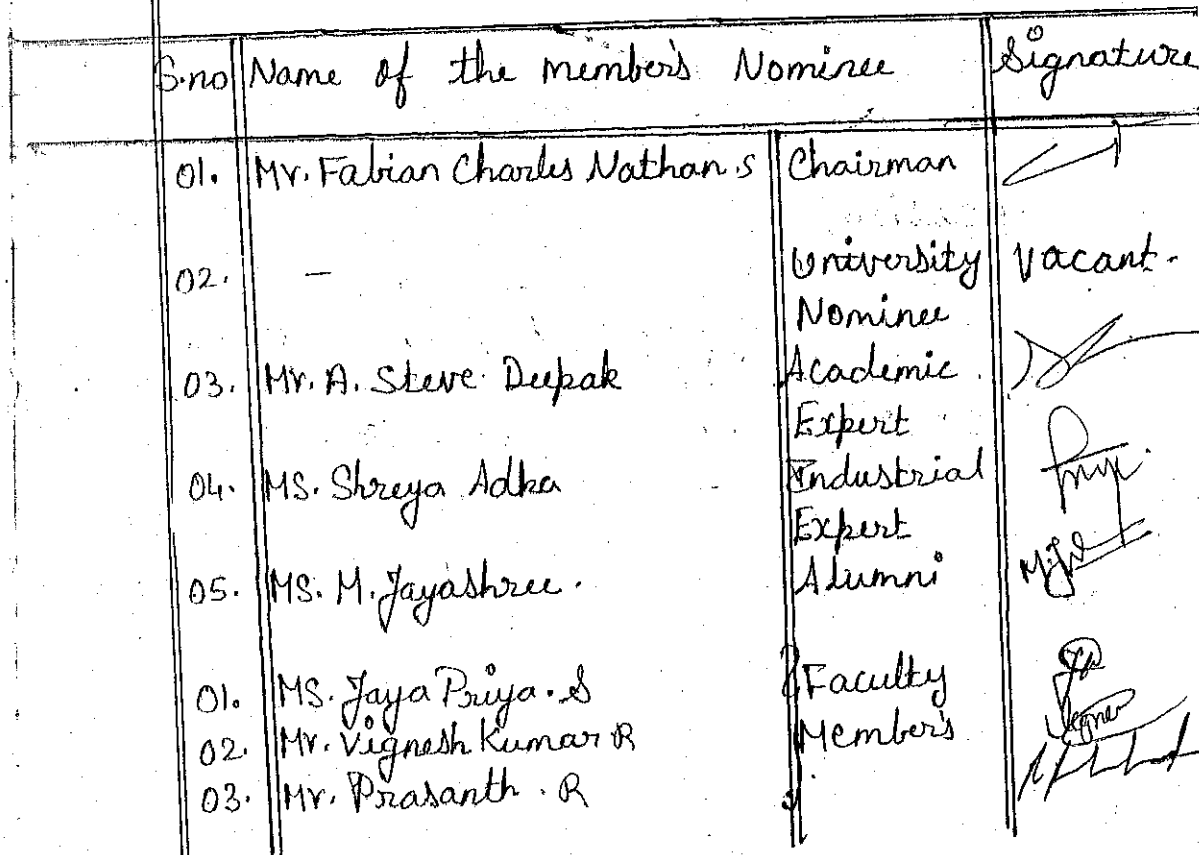 S.no Name of the member's Nominee Signature
01. Mr. Fabian Charles Nathan.S Chairman
02. — University Vacant.
Nominee
03. Mr. A. Steve Deepak Academic
Expert
04. MS. Shreya Adka Industrial
Expert
05. MS. M. Jayashree. Alumni
01. MS. Jaya Priya. S Faculty
02. Mr. Vignesh Kumar R Member's
03. Mr. Prasanth. R